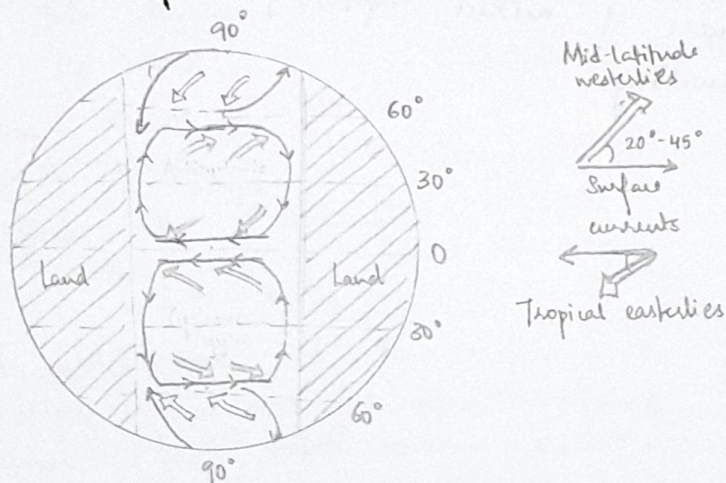 90°
60°
30°
0
30°
60°
90°
Land
Land
Mid-latitude
westerlies
20°-45°
Surface
currents
Tropical easterlies